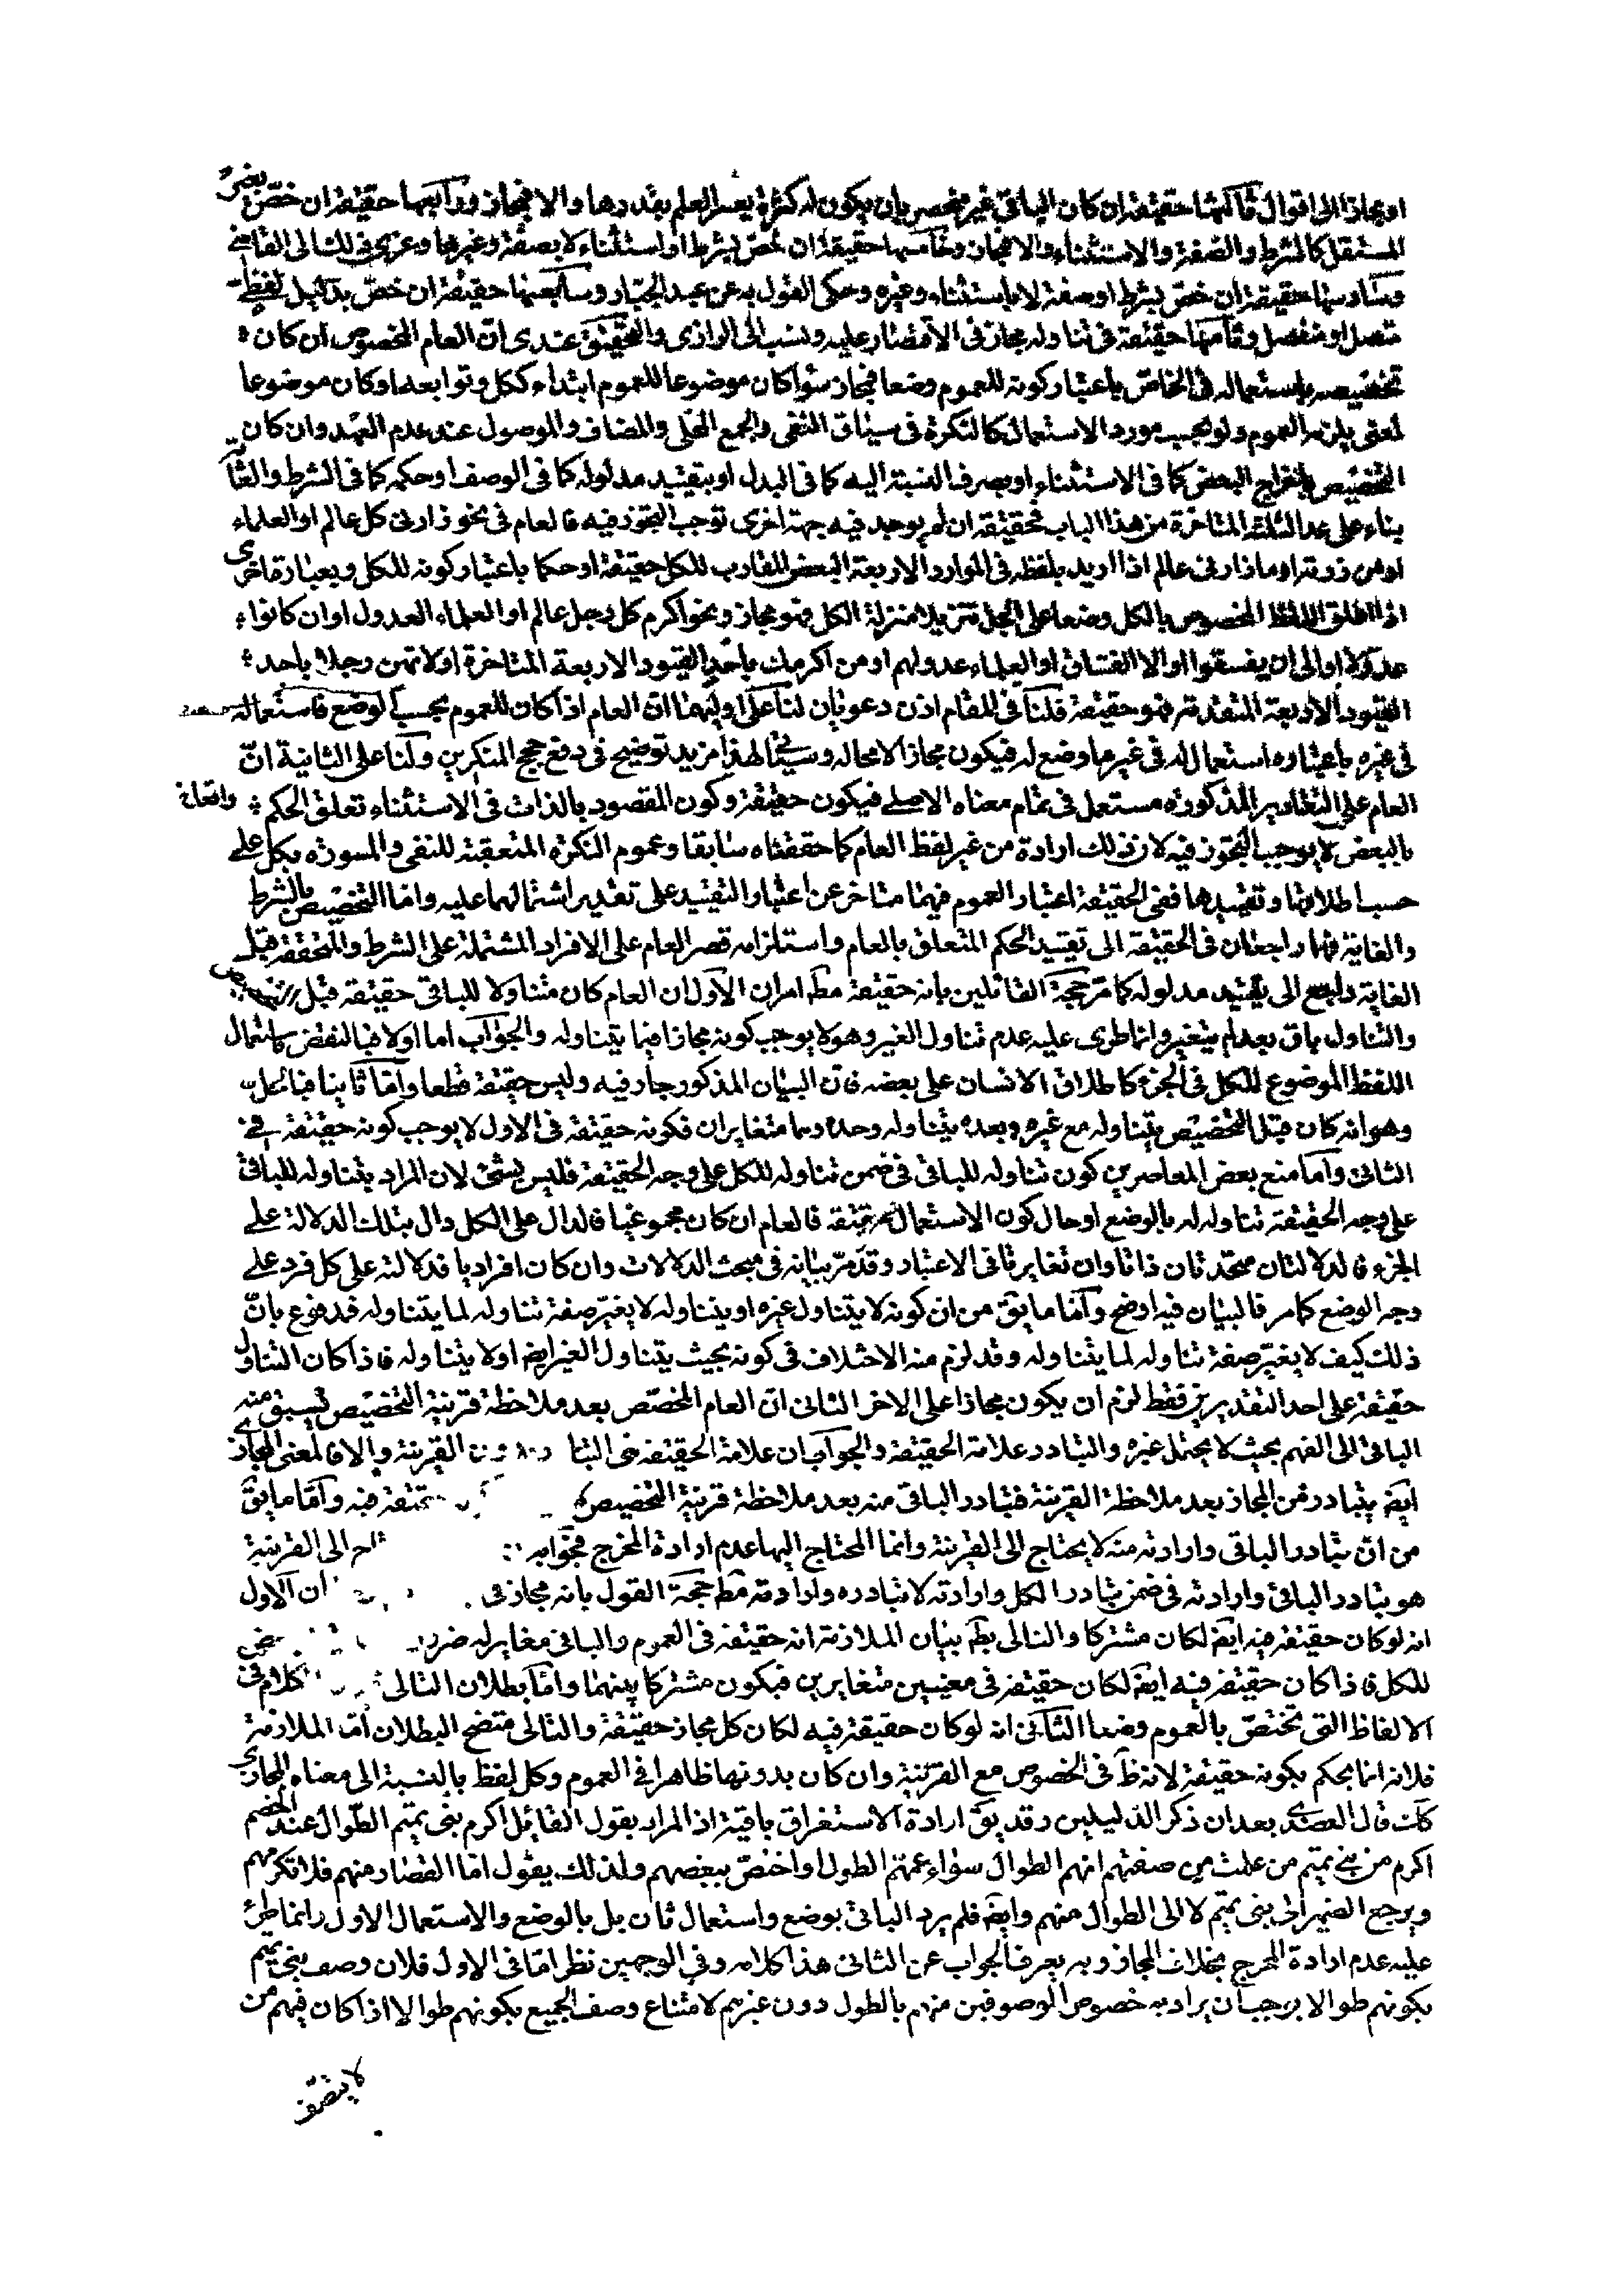 او مجازا الى اقوال ثالثها حقيقة ان كان الباقي غير منحصر بان يكون له كثرة يعسر العلم بقدرها والا فمجاز ورابعها حقيقة ان خص بغير
المستقل كالشرط والصفة والاستثناء والا فمجاز وخامسها حقيقة ان خص بشرط او استثناء لا بصفة وغيرها وعزى ذلك الى القاضي
وسادسها حقيقة ان خص بشرط او صفة لا باستثناء وغيره وحكى القول به عن عبد الجبار وسابعها حقيقة ان خص بدليل لفظي
متصل او منفصل وثامنها حقيقة في تناوله مجاز في الاقتصار عليه ونسب الى الرازى والتحقيق عندى ان العام المخصوص ان كان
تخصيصه باستعماله في الخاص باعتبار كونه للعموم وضعا فمجاز سواء كان موضوعا للعموم ابتداء ككل وتوابعه او كان موضوعا
لمعنى يلزمه العموم ولو بحسب مورد الاستعمال كالنكرة في سياق النفى والجمع المحلى والمضاف والموصول عند عدم العهد وان كان
التخصيص باخراج البعض كما في الاستثناء او بصرف النسبة اليه كما في البدل او بتقييد مدلوله كما في الوصف او حكمه كما في الشرط والغاية
بناء على عد الثلثة المتاخرة من هذا الباب فحقيقة ان لم يوجد فيه جهة اخرى توجب التجوز فيه فالعام في نحو زارنى كل عالم او العلماء
او من زرته او ما زارنى عالم اذا اريد بلفظه في الموارد الاربعة البعض المقارب للكل حقيقة او حكما باعتبار كونه للكل وبعبارة اخرى
اذا اطلق اللفظ المخصوص بالكل وضعا على الجل تنزيلا منزلة الكل فهو مجاز ونحو اكرم كل رجل عالم او العلماء العدول او ان كانوا
عدولا او الى ان يفسقوا او الا الفساق او العلماء عدولهم او من اكرمك باحد القيود الاربعة المتاخرة او لا تهن رجلا باحد
القيود الاربعة المتقدمة فهو حقيقة فلنا في المقام اذن دعويان لنا على اوليهما ان العام اذا كان للعموم بحسب الوضع فاستعماله
في غيره باعتباره استعمال له في غير ما وضع له فيكون مجازا لا محاله وسياتى لهذا مزيد توضيح في دفع حجج المنكرين ولنا على الثانية ان
العام على التقادير المذكورة مستعمل في تمام معناه الاصلى فيكون حقيقة وكون المقصود بالذات في الاستثناء تعلق الحكم
بالبعض لا يوجب التجوز فيه لان ذلك ارادة من غير لفظ العام كما حققناه سابقا وعموم النكرة المتعقبة للنفى والمسورة بكل على
حسب اطلاقها وتقييدها ففى الحقيقة اعتبار العموم فيهما متاخر عن اعتبار التقييد على تقدير اشتمالهما عليه واما التخصيص بالشرط
والغاية فهما راجعان في الحقيقة الى تقييد الحكم المتعلق بالعام واستلزامه قصر العام على الافراد المشتملة على الشرط والمتحققة قبل
الغاية راجع الى تقييد مدلوله كما مر حجة القائلين بانه حقيقة مط امران الاول ان العام كان متناولا للباقى حقيقة قبل التخصيص
والتناول باق بعد لم يتغير وانما طرى عليه عدم تناول الغير وهو لا يوجب كونه مجازا فيما يتناوله والجواب اما اولا فبالنقض باستعمال
اللفظ الموضوع للكل في الجزء كاطلاق الانسان على بعضه فان البيان المذكور جار فيه وليس حقيقة قطعا واما ثانيا فبالحل
وهو انه كان قبل التخصيص يتناوله مع غيره وبعده يتناوله وحده وهما متغايران فكونه حقيقة في الاول لا يوجب كونه حقيقة في
الثانى واما منع بعض المعاصرين كون تناوله للباقى في ضمن تناوله للكل على وجه الحقيقة فليس بشئ لان المراد بتناوله للباقى
على وجه الحقيقة تناوله له بالوضع او حال كون الاستعمال حقيقة فالعام ان كان مجموعيا فالدال على الكل دال بتلك الدلالة على
الجزء فالدلالتان متحدتان ذاتا وان تغايرتا في الاعتبار وقد مر بيانه في مبحث الدلالات وان كان افراديا فدلالته على كل فرد على
وجه الوضع كما مر فالبيان فيه اوضح واما ما يق من ان كونه لا يتناول غيره او يتناوله لا يغير صفة تناوله لما يتناوله فمدفوع بان
ذلك كيف لا يغير صفة تناوله لما يتناوله وقد لزم منه الاختلاف في كونه بحيث يتناول الغير ايض او لا يتناوله فاذا كان التناول
حقيقة على احد التقديرين فقط لزم ان يكون مجازا على الاخر الثانى ان العام المخصص بعد ملاحظة قرينة التخصيص يسبق منه
الباقى الى الفهم بحيث لا يحتمل غيره والتبادر علامة الحقيقة والجواب ان علامة الحقيقة هى التبا القرينة والا فالمعنى المجازى
ايض يتبادر من المجاز بعد ملاحظة القرينة فتبادر الباقى منه بعد ملاحظة قرينة التخصيص حقيقة فيه واما ما يق
من ان تبادر الباقى وارادته منه لا يحتاج الى القرينة وانما المحتاج اليها عدم ارادة المخرج فجوابه الى القرينة
هو تبادر الباقى وارادته في ضمن تبادر الكل وارادته لا تبادره وارادته مط حجة القول بانه مجاز في ان الاول
انه لو كان حقيقة فيه ايض لكان مشتركا والتالى بط بيان الملازمة انه حقيقة في العموم والباقى مغاير له ضرو
للكل فاذا كان حقيقة فيه ايض لكان حقيقة في معنيين متغايرين فيكون مشتركا بينهما واما بطلان التالى كلام في
الالفاظ التى تختص بالعموم وضعا الثانى انه لو كان حقيقة فيه لكان كل مجاز حقيقة والتالى متضح البطلان اما الملازمة
فلانه انما يحكم بكونه حقيقة لانه ظ في الخصوص مع القرينة وان كان بدونها ظاهرا في العموم وكل لفظ بالنسبة الى معناه المجازى
كك قال العضدى بعد ان ذكر الدليلين وقد يق ارادة الاستغراق باقية اذ المراد بقول القائل اكرم بنى تميم الطوال عند الخصم
اكرم من بنى تميم من علمت من صفتهم انهم الطوال سواء عمتهم الطول او اختص ببعضهم ولذلك يقول اما القصار منهم فلا تكرمهم
ويرجع الضمير الى بنى تميم لا الى الطوال منهم وايض فلم يرد الباقى بوضع واستعمال ثان بل بالوضع والاستعمال الاول وانما طرئ
عليه عدم ارادة المخرج بخلاف المجاز وبه يعرف الجواب عن الثانى هذا كلامه وفى الوجهين نظر اما في الاول فلان وصف بنى تميم
بكونهم طوالا يوجب ان يراد به خصوص الموصوفين منهم بالطول دون غيرهم لامتناع وصف الجميع بكونهم طوالا اذا كان فيهم من
لا يتصف